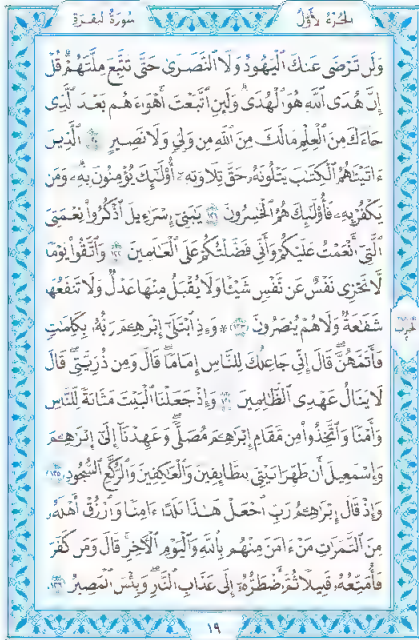 سورة البقرة
الجزء الأول
وَلَن تَرْضَىٰ عَنكَ ٱلْيَهُودُ وَلَا ٱلنَّصَٰرَىٰ حَتَّىٰ تَتَّبِعَ مِلَّتَهُمْ قُلْ
إِنَّ هُدَى ٱللَّهِ هُوَ ٱلْهُدَىٰ وَلَئِنِ ٱتَّبَعْتَ أَهْوَآءَهُم بَعْدَ ٱلَّذِى
جَآءَكَ مِنَ ٱلْعِلْمِ مَا لَكَ مِنَ ٱللَّهِ مِن وَلِىٍّ وَلَا نَصِيرٍ ١٢٠ ٱلَّذِينَ
ءَاتَيْنَٰهُمُ ٱلْكِتَٰبَ يَتْلُونَهُۥ حَقَّ تِلَاوَتِهِۦٓ أُو۟لَٰٓئِكَ يُؤْمِنُونَ بِهِۦ وَمَن
يَكْفُرْ بِهِۦ فَأُو۟لَٰٓئِكَ هُمُ ٱلْخَٰسِرُونَ ١٢١ يَٰبَنِىٓ إِسْرَٰٓءِيلَ ٱذْكُرُوا۟ نِعْمَتِىَ
ٱلَّتِىٓ أَنْعَمْتُ عَلَيْكُمْ وَأَنِّى فَضَّلْتُكُمْ عَلَى ٱلْعَٰلَمِينَ ١٢٢ وَٱتَّقُوا۟ يَوْمًا
لَّا تَجْزِى نَفْسٌ عَن نَّفْسٍ شَيْـًٔا وَلَا يُقْبَلُ مِنْهَا عَدْلٌ وَلَا تَنفَعُهَا
شَفَٰعَةٌ وَلَا هُمْ يُنصَرُونَ ١٢٣ ۞ وَإِذِ ٱبْتَلَىٰٓ إِبْرَٰهِـۧمَ رَبُّهُۥ بِكَلِمَٰتٍ
فَأَتَمَّهُنَّ قَالَ إِنِّى جَاعِلُكَ لِلنَّاسِ إِمَامًا قَالَ وَمِن ذُرِّيَّتِى قَالَ
لَا يَنَالُ عَهْدِى ٱلظَّٰلِمِينَ ١٢٤ وَإِذْ جَعَلْنَا ٱلْبَيْتَ مَثَابَةً لِّلنَّاسِ
وَأَمْنًا وَٱتَّخِذُوا۟ مِن مَّقَامِ إِبْرَٰهِـۧمَ مُصَلًّى وَعَهِدْنَآ إِلَىٰٓ إِبْرَٰهِـۧمَ
وَإِسْمَٰعِيلَ أَن طَهِّرَا بَيْتِىَ لِلطَّآئِفِينَ وَٱلْعَٰكِفِينَ وَٱلرُّكَّعِ ٱلسُّجُودِ ١٢٥
وَإِذْ قَالَ إِبْرَٰهِـۧمُ رَبِّ ٱجْعَلْ هَٰذَا بَلَدًا ءَامِنًا وَٱرْزُقْ أَهْلَهُۥ
مِنَ ٱلثَّمَرَٰتِ مَنْ ءَامَنَ مِنْهُم بِٱللَّهِ وَٱلْيَوْمِ ٱلْـَٔاخِرِ قَالَ وَمَن كَفَرَ
فَأُمَتِّعُهُۥ قَلِيلًا ثُمَّ أَضْطَرُّهُۥٓ إِلَىٰ عَذَابِ ٱلنَّارِ وَبِئْسَ ٱلْمَصِيرُ ١٢٦
١٩